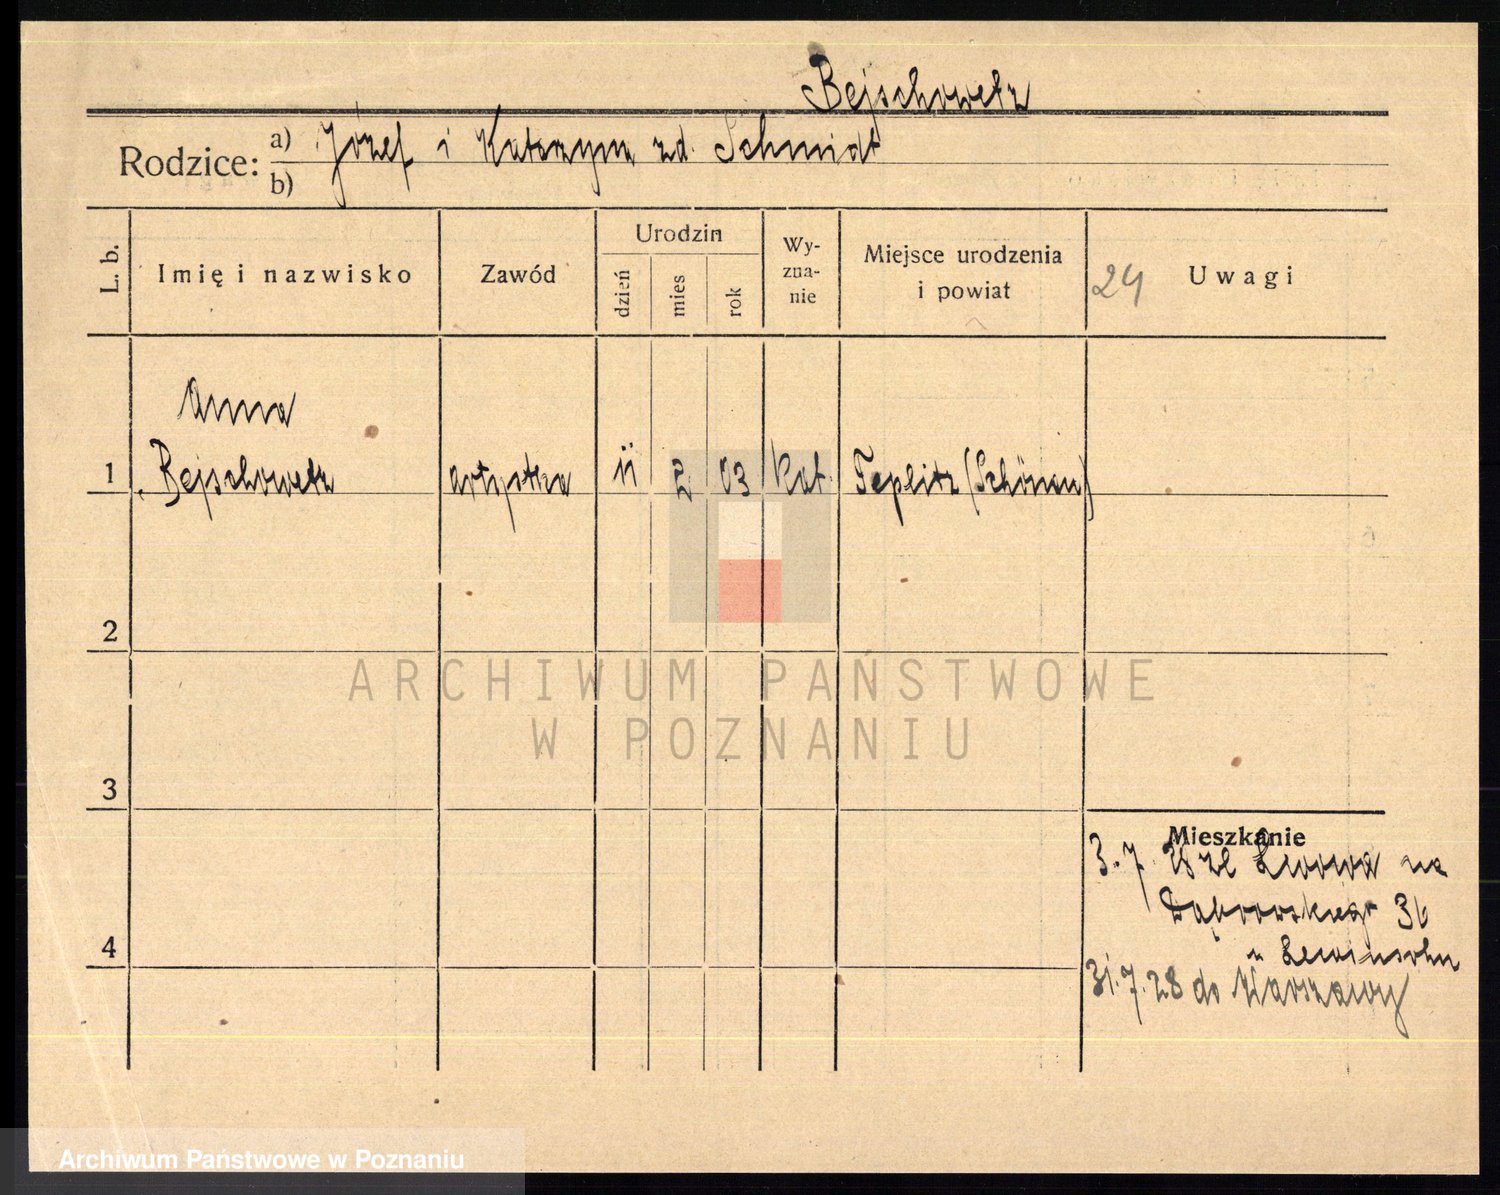 Bejschowetz
Rodzice: a) Józef i Katarzyna zd. Schmidt
b)
L. b.
Imię i nazwisko
Zawód
Urodzin
dzień
mies
rok
Wy-
zna-
nie
Miejsce urodzenia
i powiat
24 Uwagi
Anna
1 Bejschowetz artystka 11 2 03 kat. Teplitz (Schönau)
2
ARCHIWUM PAŃSTWOWE
W POZNANIU
3
Mieszkanie
3.7. 28 ze Lwowa na
Dąbrowskiego 36
4
u Lewinsohn
31.7.28 do Warszawy
Archiwum Państwowe w Poznaniu